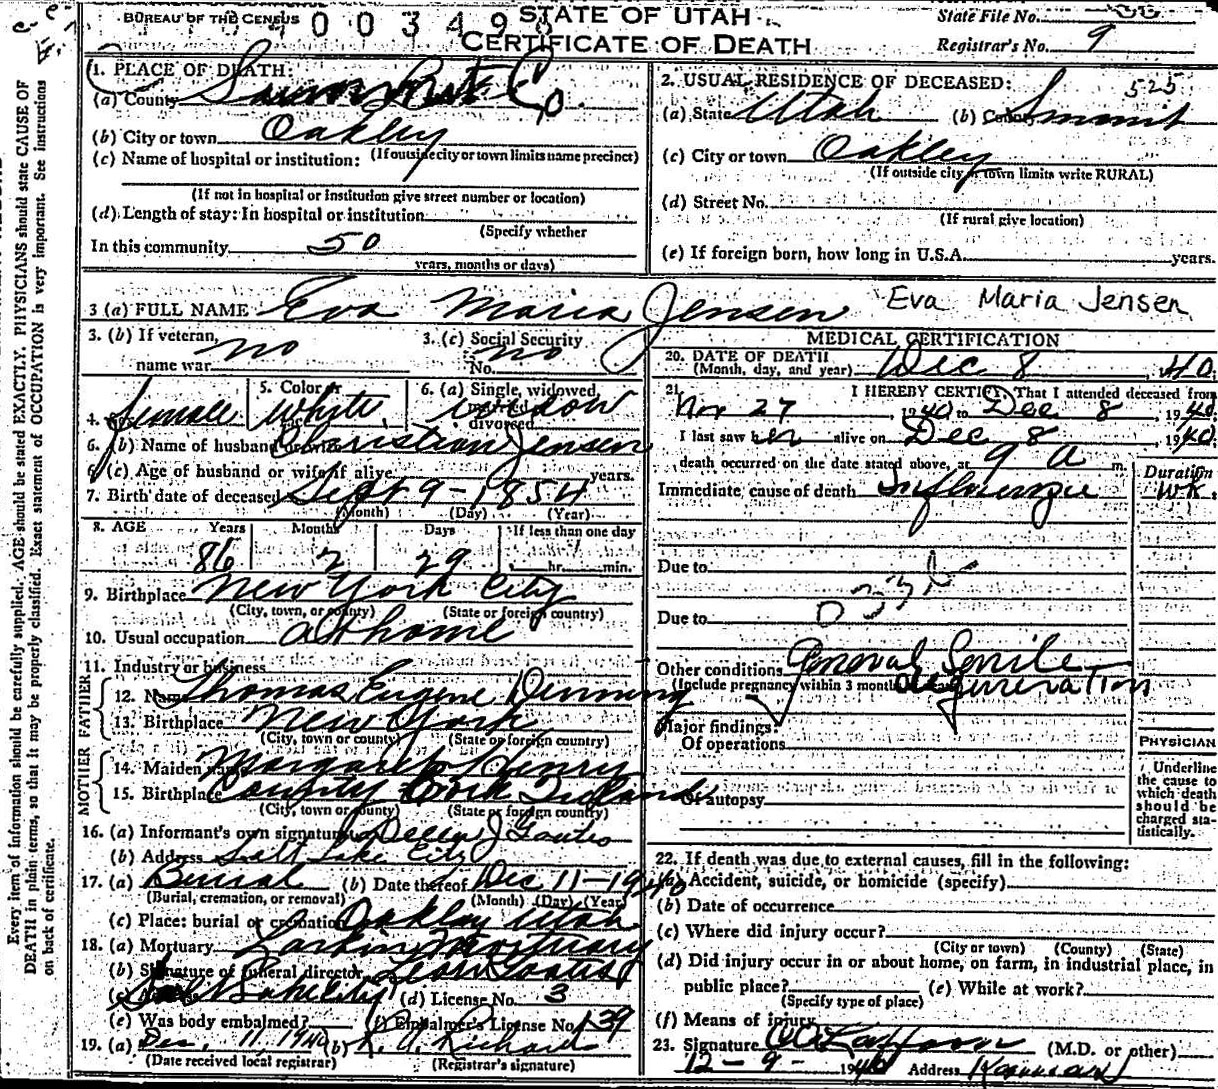 BUREAU OF THE CENSUS
STATE OF UTAH
CERTIFICATE OF DEATH
State File No.
Registrar's No. 9
Every item of information should be carefully supplied. AGE should be stated EXACTLY. PHYSICIANS should state CAUSE OF
DEATH in plain terms, so that it may be properly classified. Exact statement of OCCUPATION is very important. See instructions
on back of certificate.
1. PLACE OF DEATH:
(a) County Summit Co.
(b) City or town Oakley
(If outside city or town limits name precinct)
(c) Name of hospital or institution:
(If not in hospital or institution give street number or location)
(d) Length of stay: In hospital or institution
(Specify whether
In this community 50
years, months or days)
2. USUAL RESIDENCE OF DECEASED:
525
(a) State Utah (b) County Summit
(c) City or town Oakley
(If outside city or town limits write RURAL)
(d) Street No.
(If rural give location)
(e) If foreign born, how long in U.S.A. years.
3 (a) FULL NAME Eva Maria Jensen
Eva Maria Jensen
3. (b) If veteran, name war no
3. (c) Social Security No. no
4. female
5. Color or white
6. (a) Single, widowed, married divorced widow
6. (b) Name of husband Christian Jensen
6. (c) Age of husband or wife if alive years.
7. Birth date of deceased Sept 9 - 1854
(Month) (Day) (Year)
8. AGE Years Months Days If less than one day
86 2 29 hr. min.
9. Birthplace New York City
(City, town, or county) (State or foreign country)
10. Usual occupation at home
11. Industry or business
FATHER
12. Name Thomas Eugene Dinning
13. Birthplace New York
(City, town or county) (State or foreign country)
MOTHER
14. Maiden name Margaret Henry
15. Birthplace County Cork Ireland
(City, town or county) (State or foreign country)
16. (a) Informant's own signature
(b) Address Salt Lake City
17. (a) Burial (b) Date thereof Dec 11-1940
(Burial, cremation, or removal) (Month) (Day) (Year)
(c) Place: burial or cremation Oakley Utah
18. (a) Mortuary Larkin Mortuary
(b) Signature of funeral director
Salt Lake City (d) License No. 3
(e) Was body embalmed? (f) Embalmer's License No. 139
19. (a) Dec. 11, 1940 (b)
(Date received local registrar) (Registrar's signature)
MEDICAL CERTIFICATION
20. DATE OF DEATH
(Month, day, and year) Dec 8, 40
21. I HEREBY CERTIFY, That I attended deceased from
Nov 27, 1940 to Dec 8, 1940
I last saw her alive on Dec 8, 1940
death occurred on the date stated above, at 9 a m.
Immediate cause of death Influenza
Duration
wk.
Due to
Due to
Other conditions General Senile degeneration
(Include pregnancy within 3 months
Major findings:
Of operations
Of autopsy
PHYSICIAN
Underline
the cause to
which death
should be
charged sta-
tistically.
22. If death was due to external causes, fill in the following:
(a) Accident, suicide, or homicide (specify)
(b) Date of occurrence
(c) Where did injury occur?
(City or town) (County) (State)
(d) Did injury occur in or about home, on farm, in industrial place, in
public place? (e) While at work?
(Specify type of place)
(f) Means of injury
23. Signature (M.D. or other)
12-9-1940 Address Kamas